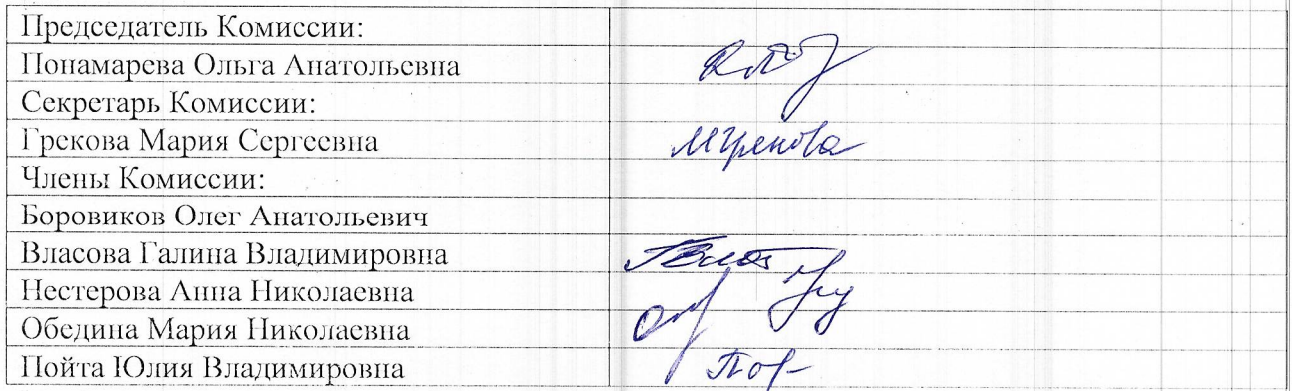 Председатель Комиссии:
Понамарева Ольга Анатольевна
Секретарь Комиссии:
Грекова Мария Сергеевна МГрекова
Члены Комиссии:
Боровиков Олег Анатольевич
Власова Галина Владимировна
Нестерова Анна Николаевна
Обедина Мария Николаевна
Пойта Юлия Владимировна